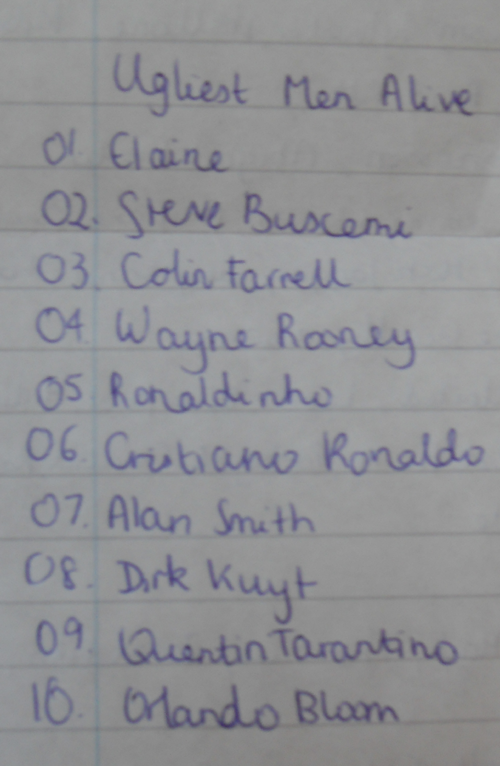 Ugliest Men Alive
01. Elaine
02. Steve Buscemi
03. Colin Farrell
04. Wayne Rooney
05 Ronaldinho
06. Cristiano Ronaldo
07. Alan Smith
08. Dirk Kuyt
09. Quentin Tarantino
10. Orlando Bloom